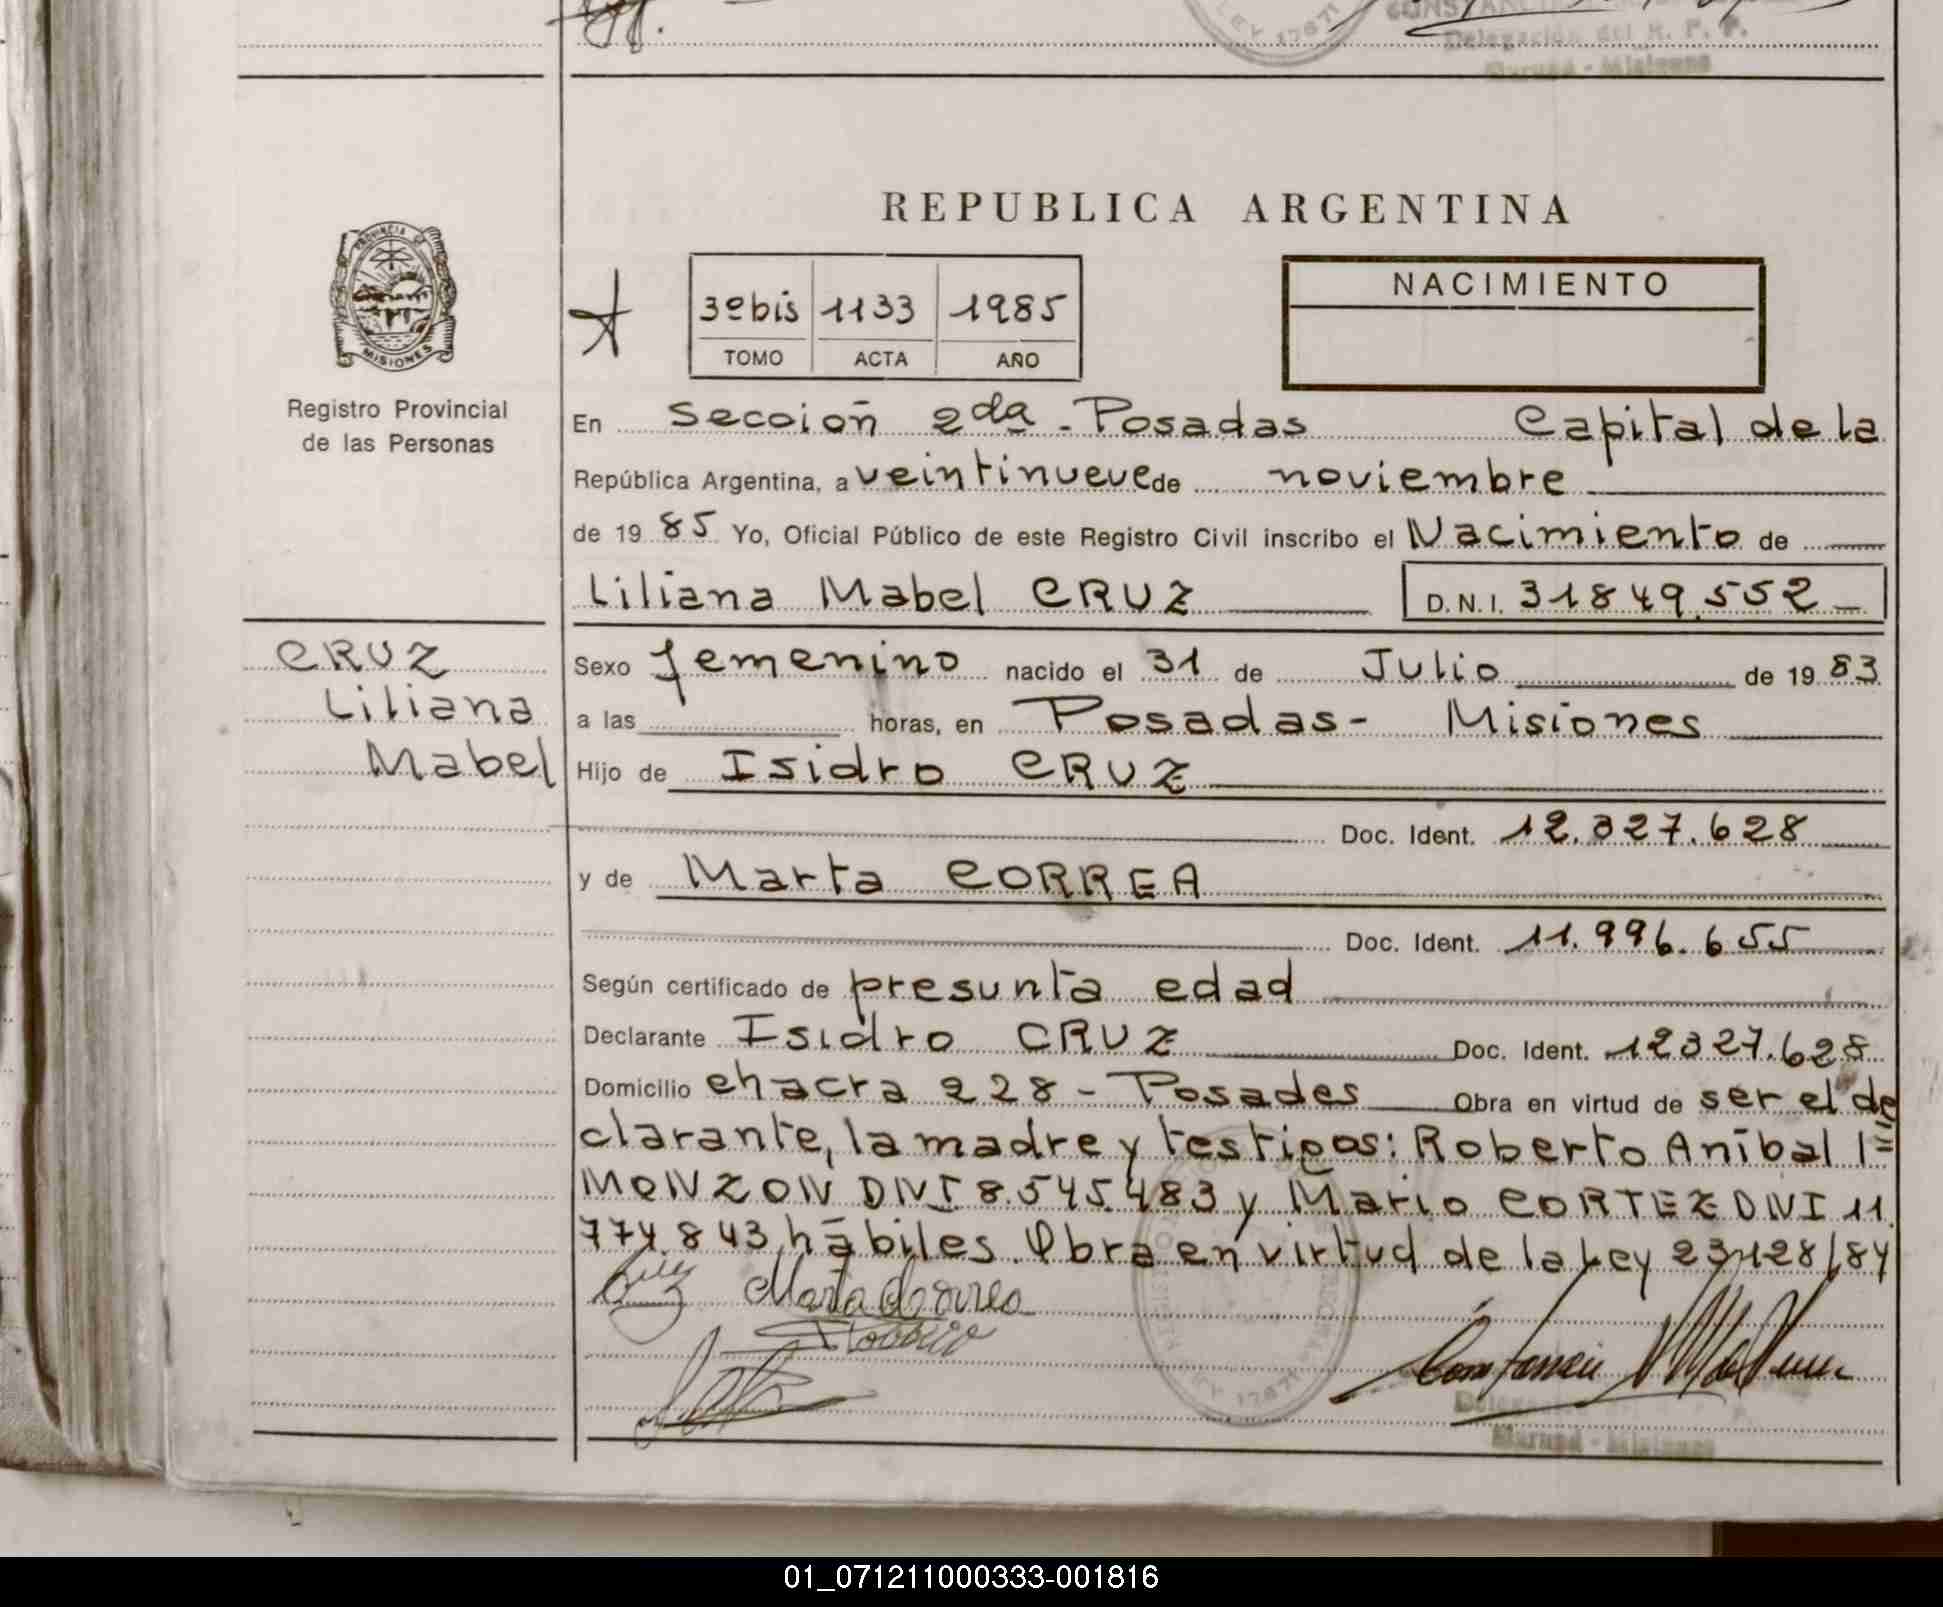 LEY 17671
Delegación del R. P. P.
Garupá - Misiones
REPUBLICA ARGENTINA
PROVINCIA DE
MISIONES
Registro Provincial
de las Personas
3º bis 1133 1985
TOMO ACTA AÑO
NACIMIENTO
En Sección 2da - Posadas Capital de la
República Argentina, a veintinueve de noviembre
de 19 85 Yo, Oficial Público de este Registro Civil inscribo el Nacimiento de
Liliana Mabel CRUZ D.N.I. 31849.552
CRUZ
Liliana
Mabel
Sexo femenino nacido el 31 de Julio de 19 83
a las horas, en Posadas- Misiones
Hijo de Isidro CRUZ
Doc. Ident. 12.327.628
y de Marta CORREA
Doc. Ident. 11.996.655
Según certificado de presunta edad
Declarante Isidro CRUZ Doc. Ident. 12327.628
Domicilio chacra 228 - Posadas Obra en virtud de ser el de
clarante, la madre y testigos: Roberto Aníbal
MONZON DNI 8.545.483 y Mario CORTEZ DNI 11.
774.843 hábiles. Obra en virtud de la Ley 23.128/84
Marta Correa
Garupá - Misiones
01_071211000333-001816